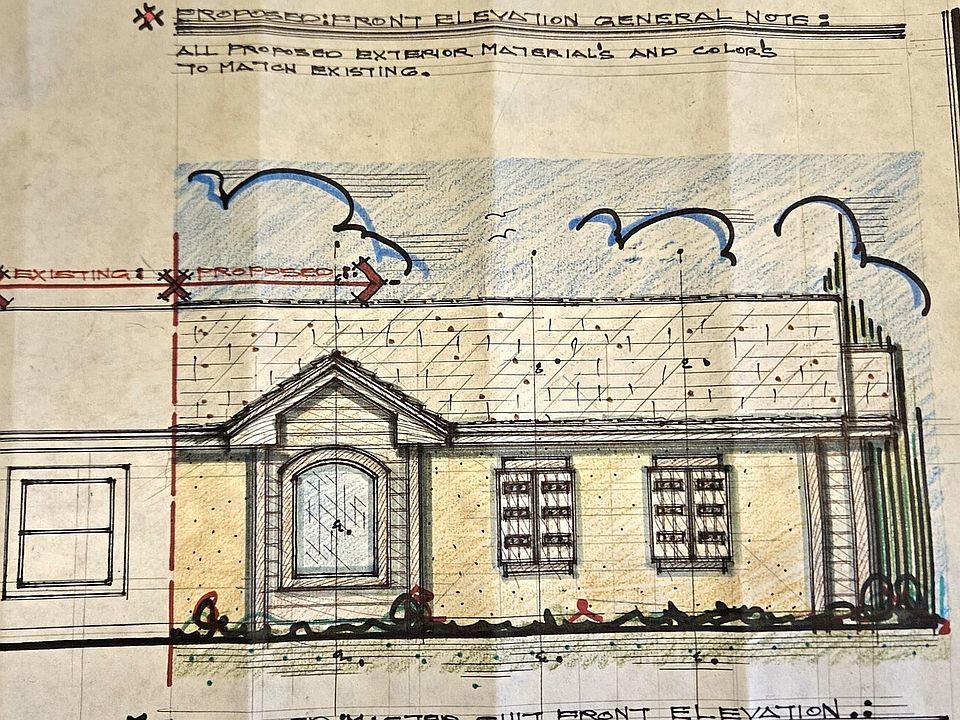 PROPOSED: FRONT ELEVATION GENERAL NOTE:
ALL PROPOSED EXTERIOR MATERIAL'S AND COLOR'S
TO MATCH EXISTING.
EXISTING: PROPOSED:
MASTER SUIT FRONT ELEVATION.: